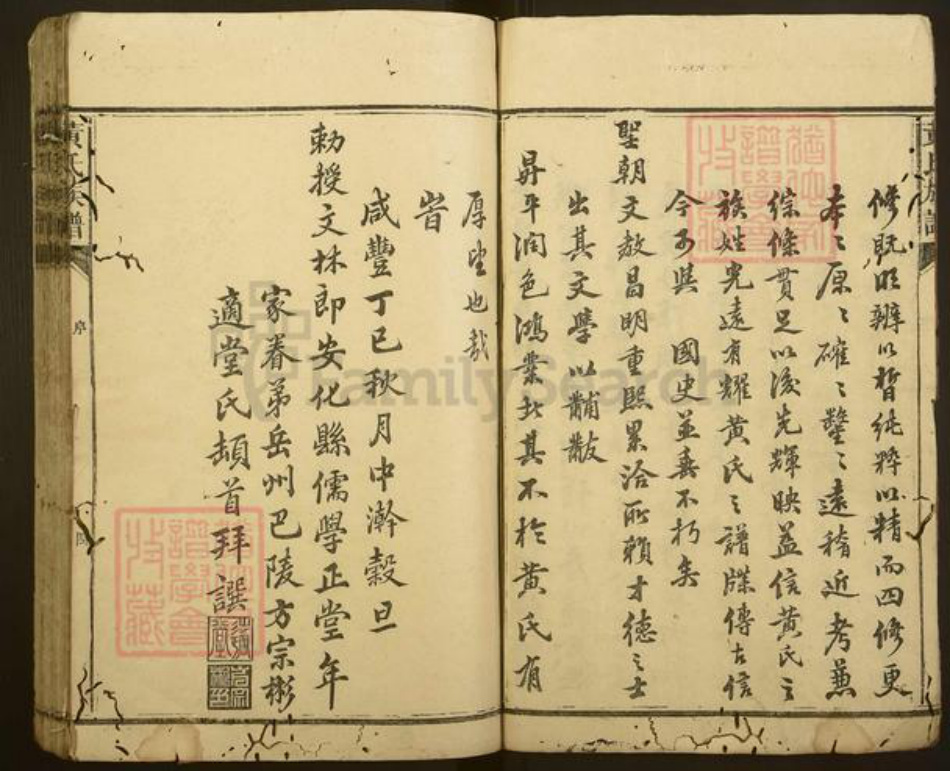 修既明辨以晳純粹以精而四修更
本〻原〻確〻鑿〻遠稽近考兼
綜條貫足以後先輝映益信黃氏之
族姓光遠有耀黃氏之譜牒傳古信
今可與 國史並壽不朽矣
聖朝文教昌明重熙累洽所賴才德之士
出其文學以黼黻
昇平潤色鴻業非其不於黃氏有
厚望也哉
旹
咸豐丁巳秋月中澣穀旦
勅授文林郎安化縣儒學正堂年
家眷弟岳州巴陵方宗彬
適堂氏頓首拜譔
黃氏族譜
序
黃氏族譜
譜學會
收藏
譜學會
收藏
FamilySearch